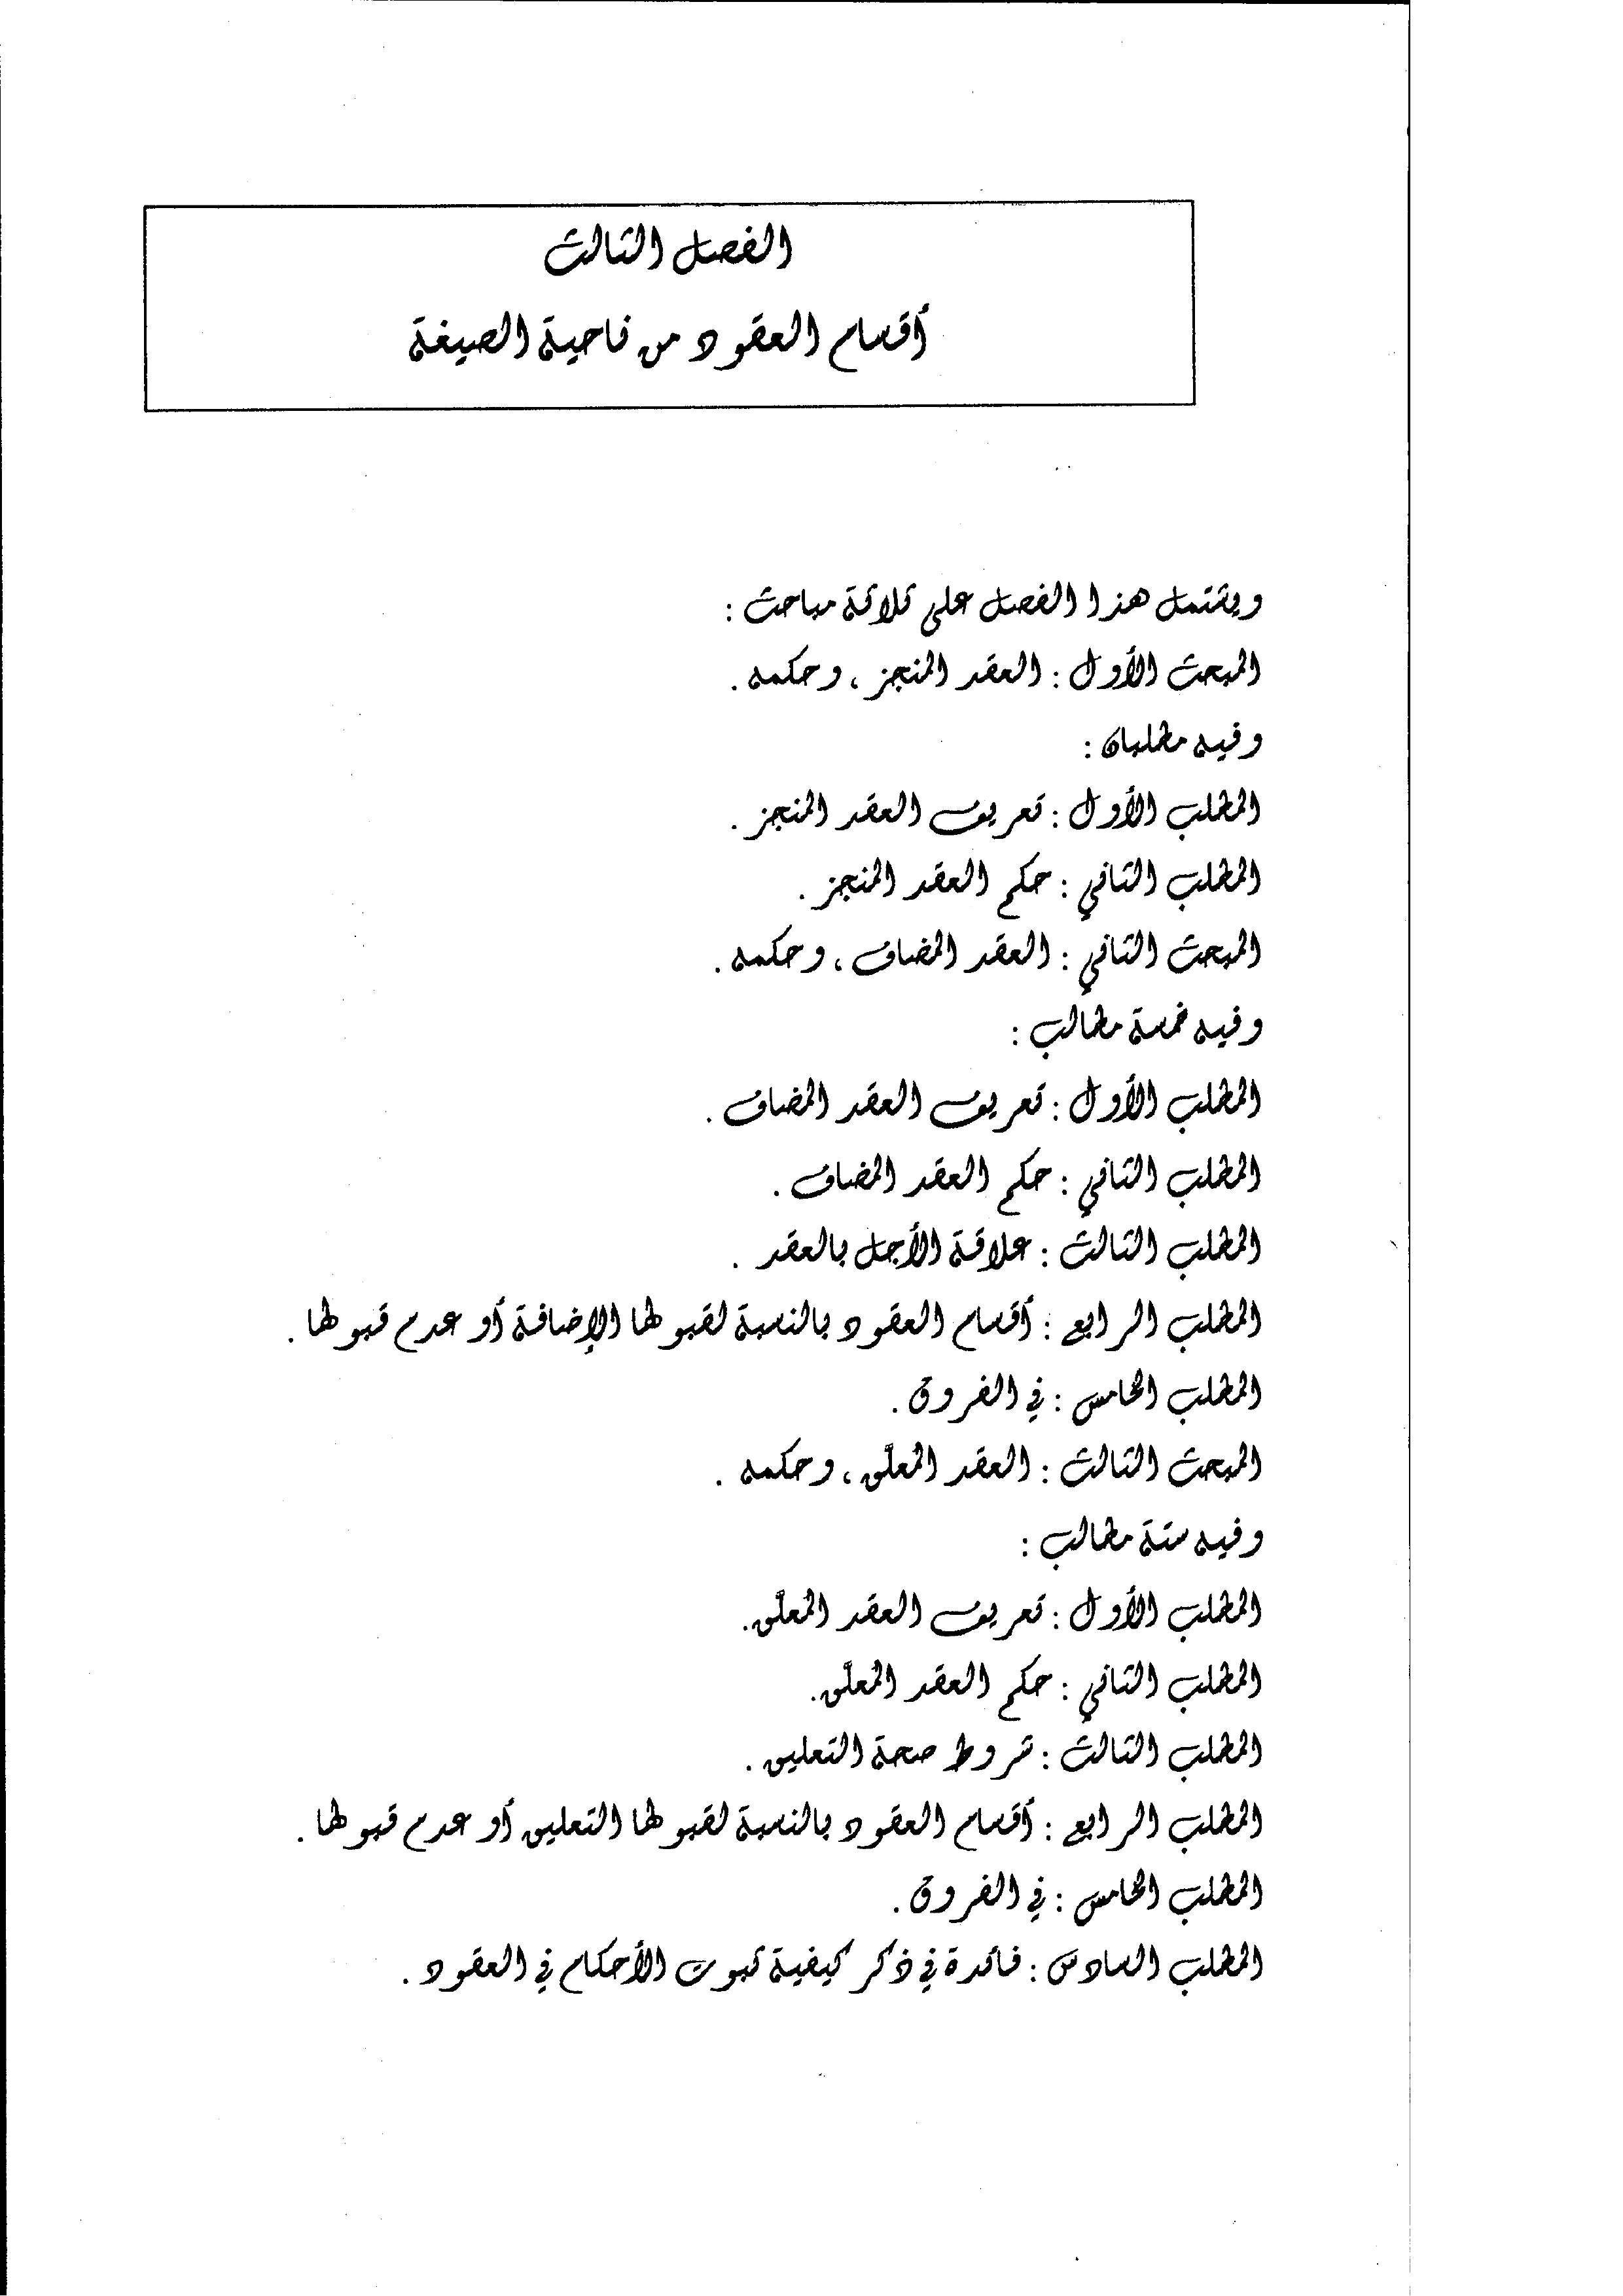 الفصل الثالث
أقسام العقود من ناحية الصيغة
ويشتمل هذا الفصل على ثلاثة مباحث :
المبحث الأول : العقد المنجز ، وحكمه .
وفيه مطلبان :
المطلب الأول : تعريف العقد المنجز .
المطلب الثاني : حكم العقد المنجز .
المبحث الثاني : العقد المضاف ، وحكمه .
وفيه خمسة مطالب :
المطلب الأول : تعريف العقد المضاف .
المطلب الثاني : حكم العقد المضاف .
المطلب الثالث : علاقة الأجل بالعقد .
المطلب الرابع : أقسام العقود بالنسبة لقبولها الإضافة أو عدم قبولها .
المطلب الخامس : في الفروق .
المبحث الثالث : العقد المُعلّق ، وحكمه .
وفيه ستة مطالب :
المطلب الأول : تعريف العقد المُعلّق.
المطلب الثاني : حكم العقد المُعلّق.
المطلب الثالث : شروط صحة التعليق .
المطلب الرابع : أقسام العقود بالنسبة لقبولها التعليق أو عدم قبولها .
المطلب الخامس : في الفروق .
المطلب السادس : فائدة في ذكر كيفية ثبوت الأحكام في العقود .